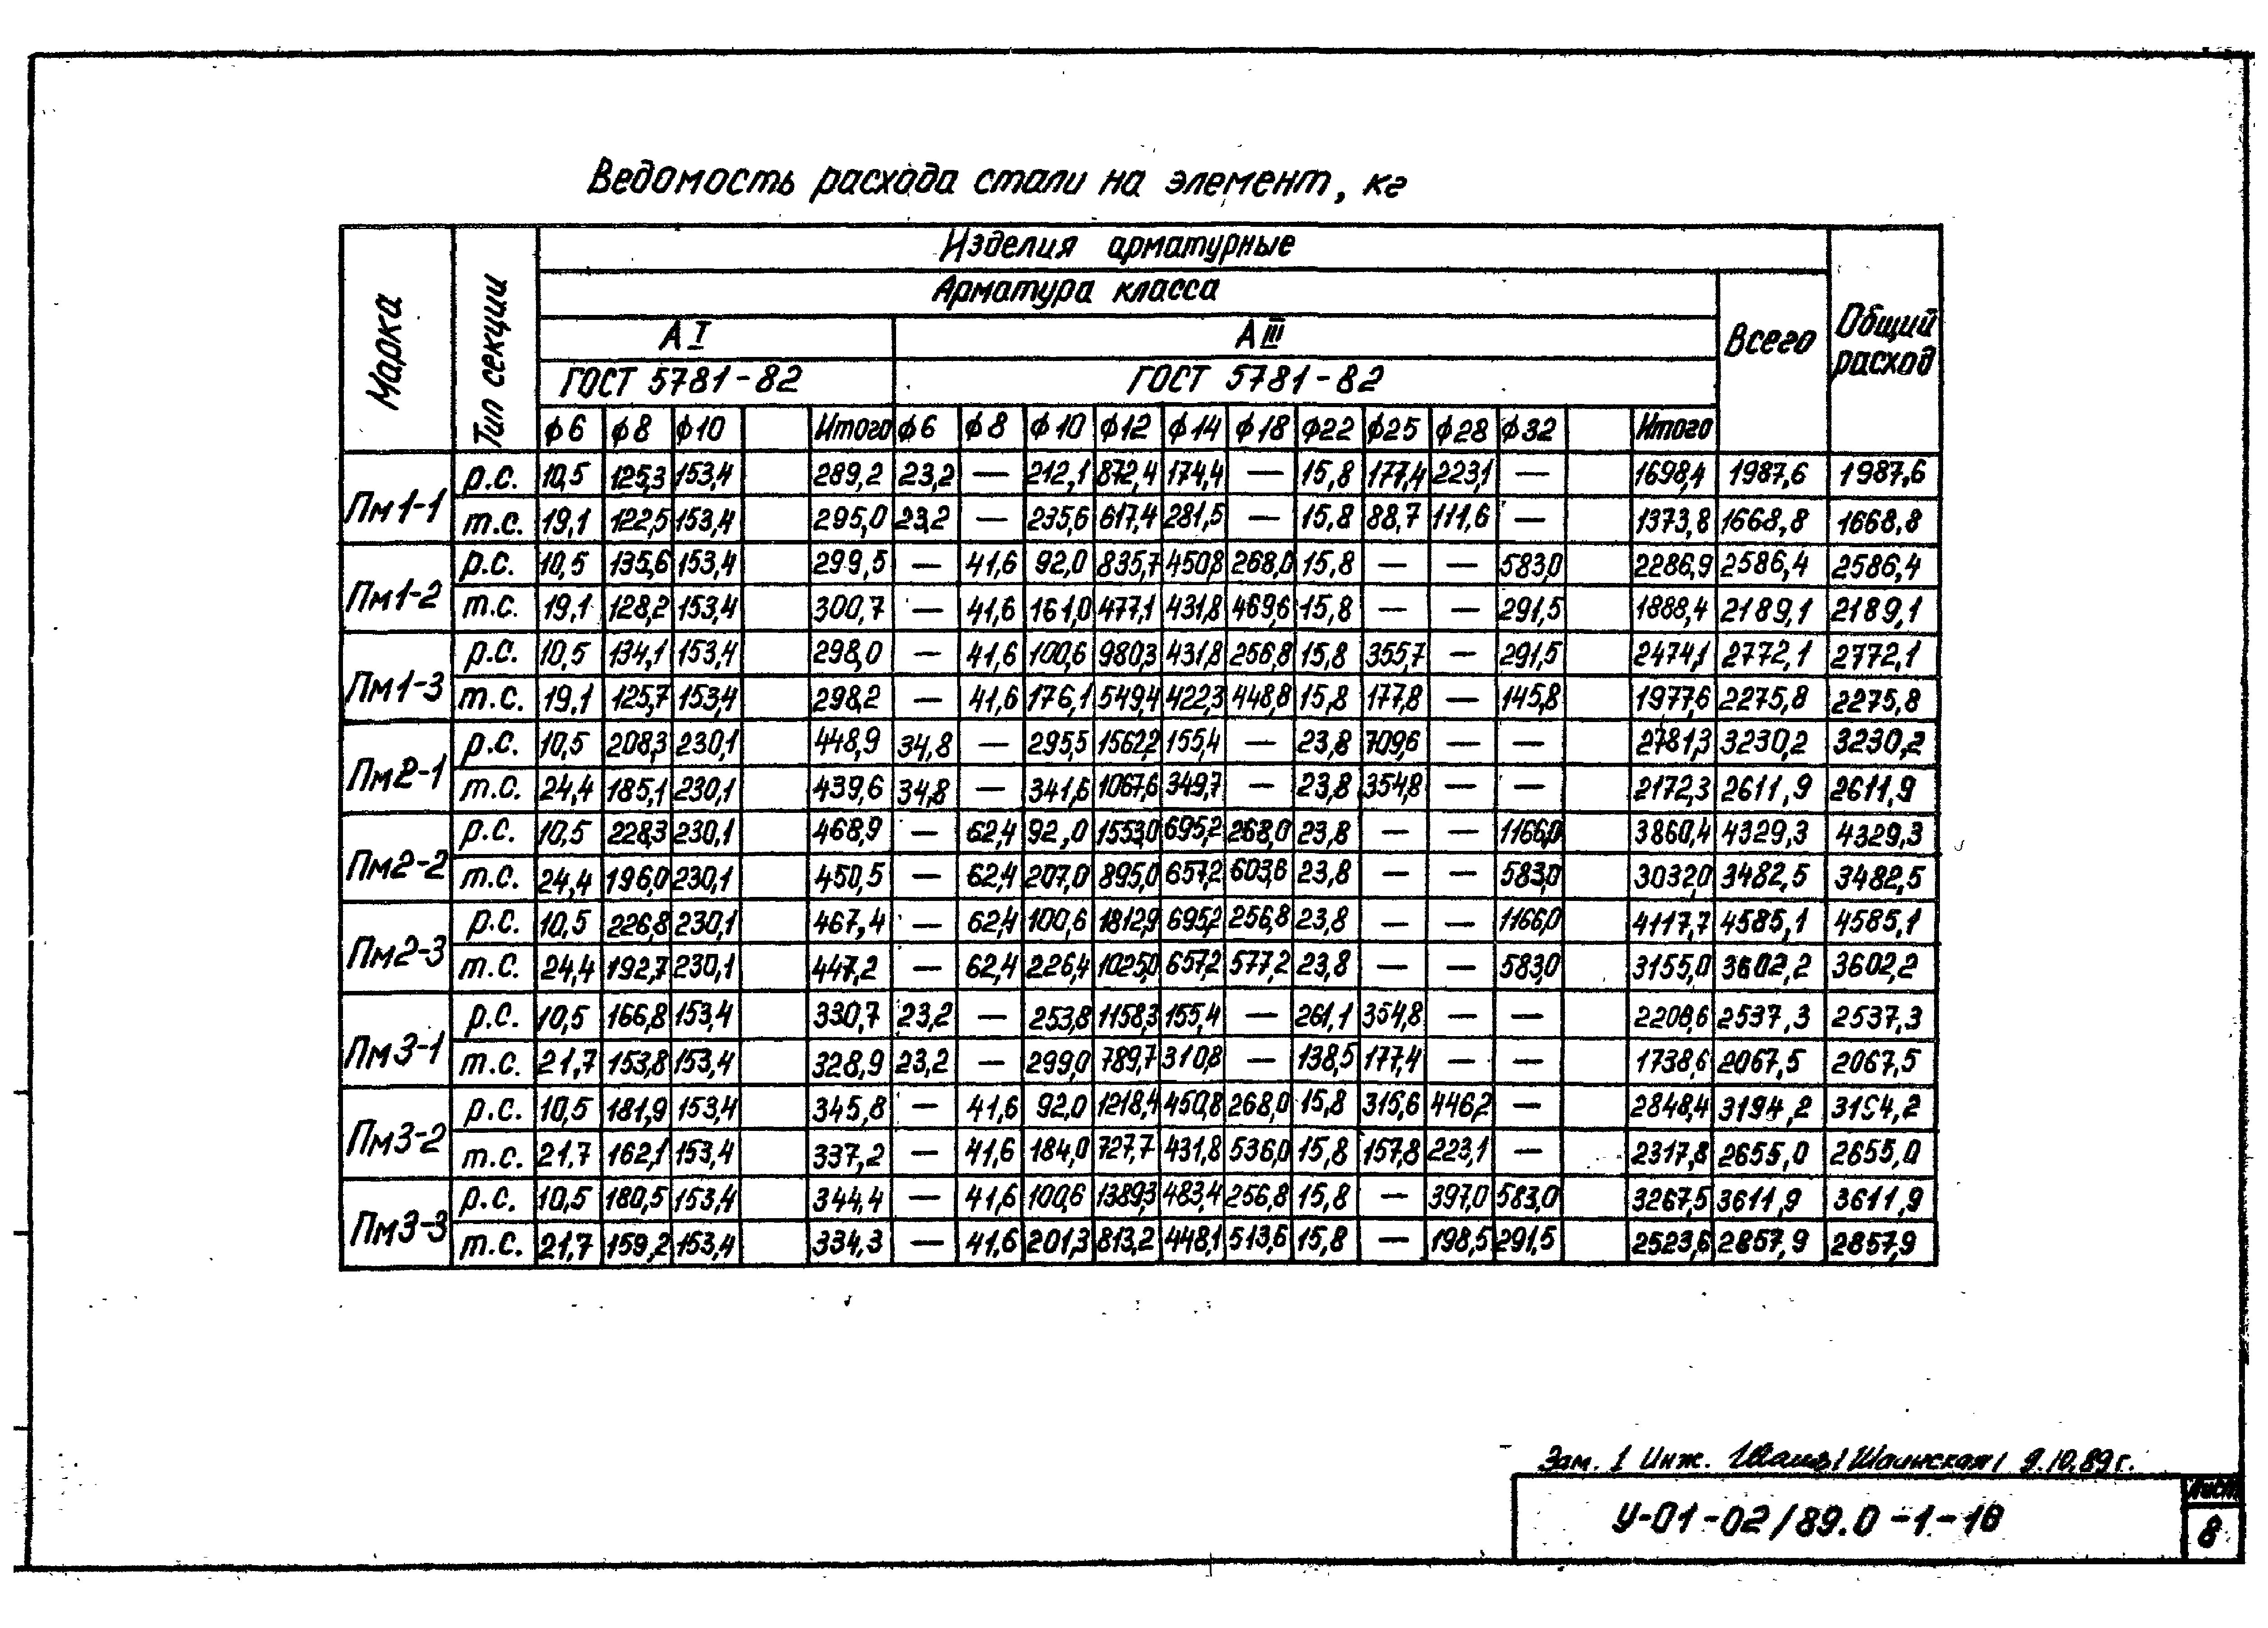 Ведомость расхода стали на элемент, кг
Марка Тип секции Изделия арматурные Общий расход
Арматура класса Всего
А I А III
ГОСТ 5781-82 ГОСТ 5781-82
ϕ6 ϕ8 ϕ10 Итого ϕ6 ϕ8 ϕ10 ϕ12 ϕ14 ϕ18 ϕ22 ϕ25 ϕ28 ϕ32 Итого
Пм1-1 р.с. 10,5 125,3 153,4 289,2 23,2 — 212,1 872,4 174,4 — 15,8 177,4 223,1 — 1698,4 1987,6 1987,6
т.с. 19,1 122,5 153,4 295,0 23,2 — 235,6 617,4 281,5 — 15,8 88,7 111,6 — 1373,8 1668,8 1668,8
Пм1-2 р.с. 10,5 135,6 153,4 299,5 — 41,6 92,0 835,7 450,8 268,0 15,8 — — 583,0 2286,9 2586,4 2586,4
т.с. 19,1 128,2 153,4 300,7 — 41,6 161,0 477,1 431,8 469,6 15,8 — — 291,5 1888,4 2189,1 2189,1
Пм1-3 р.с. 10,5 134,1 153,4 298,0 — 41,6 100,6 980,3 431,8 256,8 15,8 355,7 — 291,5 2474,1 2772,1 2772,1
т.с. 19,1 125,7 153,4 298,2 — 41,6 176,1 549,4 422,3 448,8 15,8 177,8 — 145,8 1977,6 2275,8 2275,8
Пм2-1 р.с. 10,5 208,3 230,1 448,9 34,8 — 295,5 1562,2 155,4 — 23,8 709,6 — — 2781,3 3230,2 3230,2
т.с. 24,4 185,1 230,1 439,6 34,8 — 341,6 1067,6 349,7 — 23,8 354,8 — — 2172,3 2611,9 2611,9
Пм2-2 р.с. 10,5 228,3 230,1 468,9 — 62,4 92,0 1553,0 695,2 268,0 23,8 — — 1166,0 3860,4 4329,3 4329,3
т.с. 24,4 196,0 230,1 450,5 — 62,4 207,0 895,0 657,2 603,6 23,8 — — 583,0 3032,0 3482,5 3482,5
Пм2-3 р.с. 10,5 226,8 230,1 467,4 — 62,4 100,6 1812,9 695,2 256,8 23,8 — — 1166,0 4117,7 4585,1 4585,1
т.с. 24,4 192,7 230,1 447,2 — 62,4 226,4 1025,0 657,2 577,2 23,8 — — 583,0 3155,0 3602,2 3602,2
Пм3-1 р.с. 10,5 166,8 153,4 330,7 23,2 — 253,8 1158,3 155,4 — 261,1 354,8 — — 2206,6 2537,3 2537,3
т.с. 21,7 153,8 153,4 328,9 23,2 — 299,0 789,7 310,8 — 138,5 177,4 — — 1738,6 2067,5 2067,5
Пм3-2 р.с. 10,5 181,9 153,4 345,8 — 41,6 92,0 1218,4 450,8 268,0 15,8 315,6 446,2 — 2848,4 3194,2 3194,2
т.с. 21,7 162,1 153,4 337,2 — 41,6 184,0 727,7 431,8 536,0 15,8 157,8 223,1 — 2317,8 2655,0 2655,0
Пм3-3 р.с. 10,5 180,5 153,4 344,4 — 41,6 100,6 1389,3 483,4 256,8 15,8 — 397,0 583,0 3267,5 3611,9 3611,9
т.с. 21,7 159,2 153,4 334,3 — 41,6 201,3 813,2 448,1 513,6 15,8 — 198,5 291,5 2523,6 2857,9 2857,9
Зам. 1 Инж. /Шаинская/ 9.10.89г.
У-01-02/89.0-1-10
Лист
8